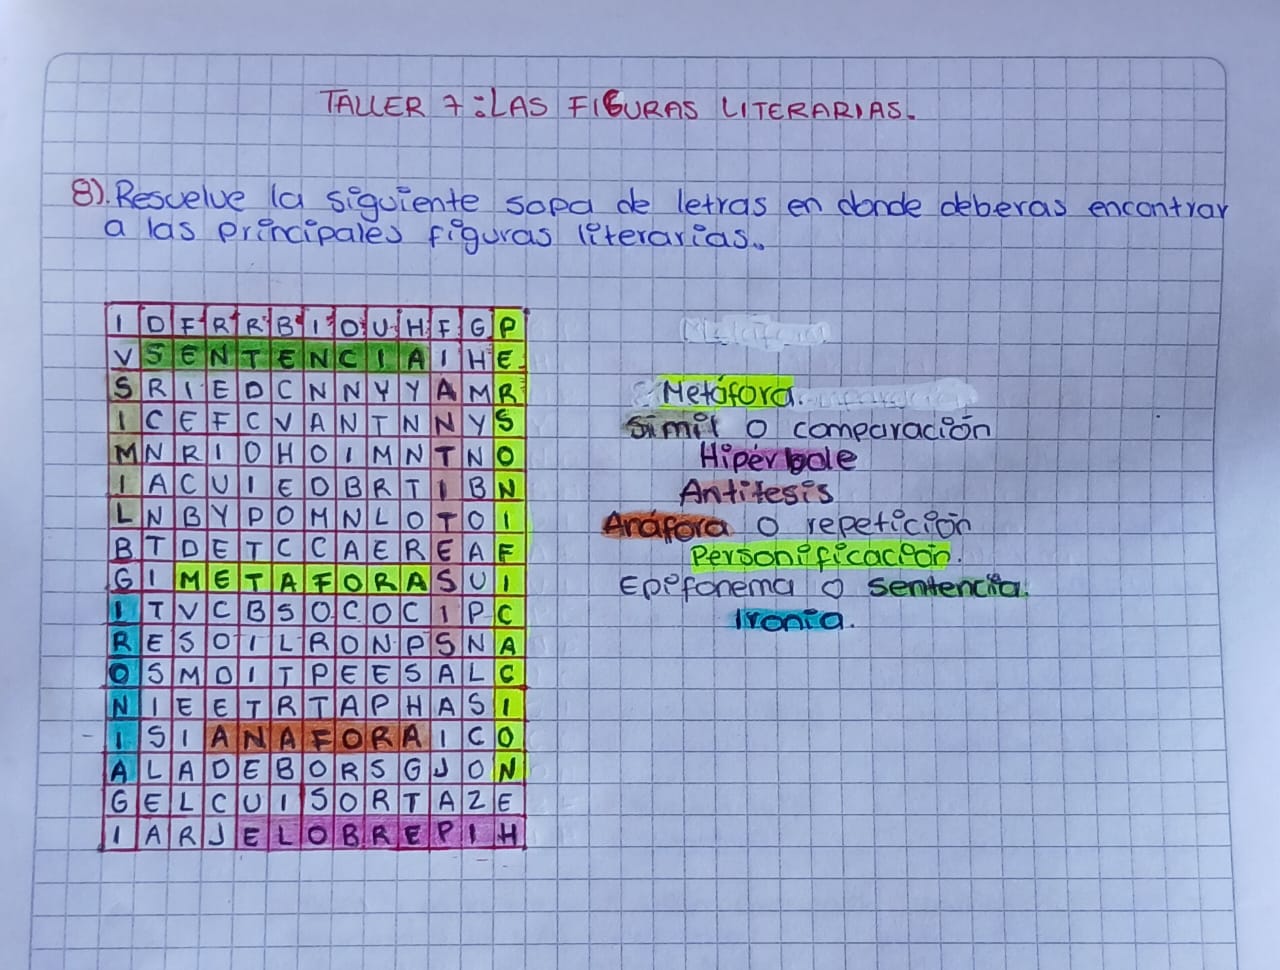 TALLER 7: LAS FIGURAS LITERARIAS.
8). Resuelve la siguiente sopa de letras en donde deberas encontrar
a las principales figuras literarias.
I D F R R B I O U H F G P
V S E N T E N C I A I H E
S R I E D C N N Y Y A M R
I C E F C V A N T N N Y S
M N R I O H O I M N T N O
I A C U I E O B R T I B N
L N B Y P O M N L O T O I
B T D E T C C A E R E A F
G I M E T A F O R A S U I
I T V C B S O C O C I P C
R E S O I L R O N P S N A
O S M O I T P E E S A L C
N I E E T R T A P H A S I
I S I A N A F O R A I C O
A L A D E B O R S G J O N
G E L C U I S O R T A Z E
I A R J E L O B R E P I H
Metáfora.
Simil o comparación
Hipérbole
Antitesis
Anáfora o repetición
Personificación.
Epifonema o sentencia.
Ironia.